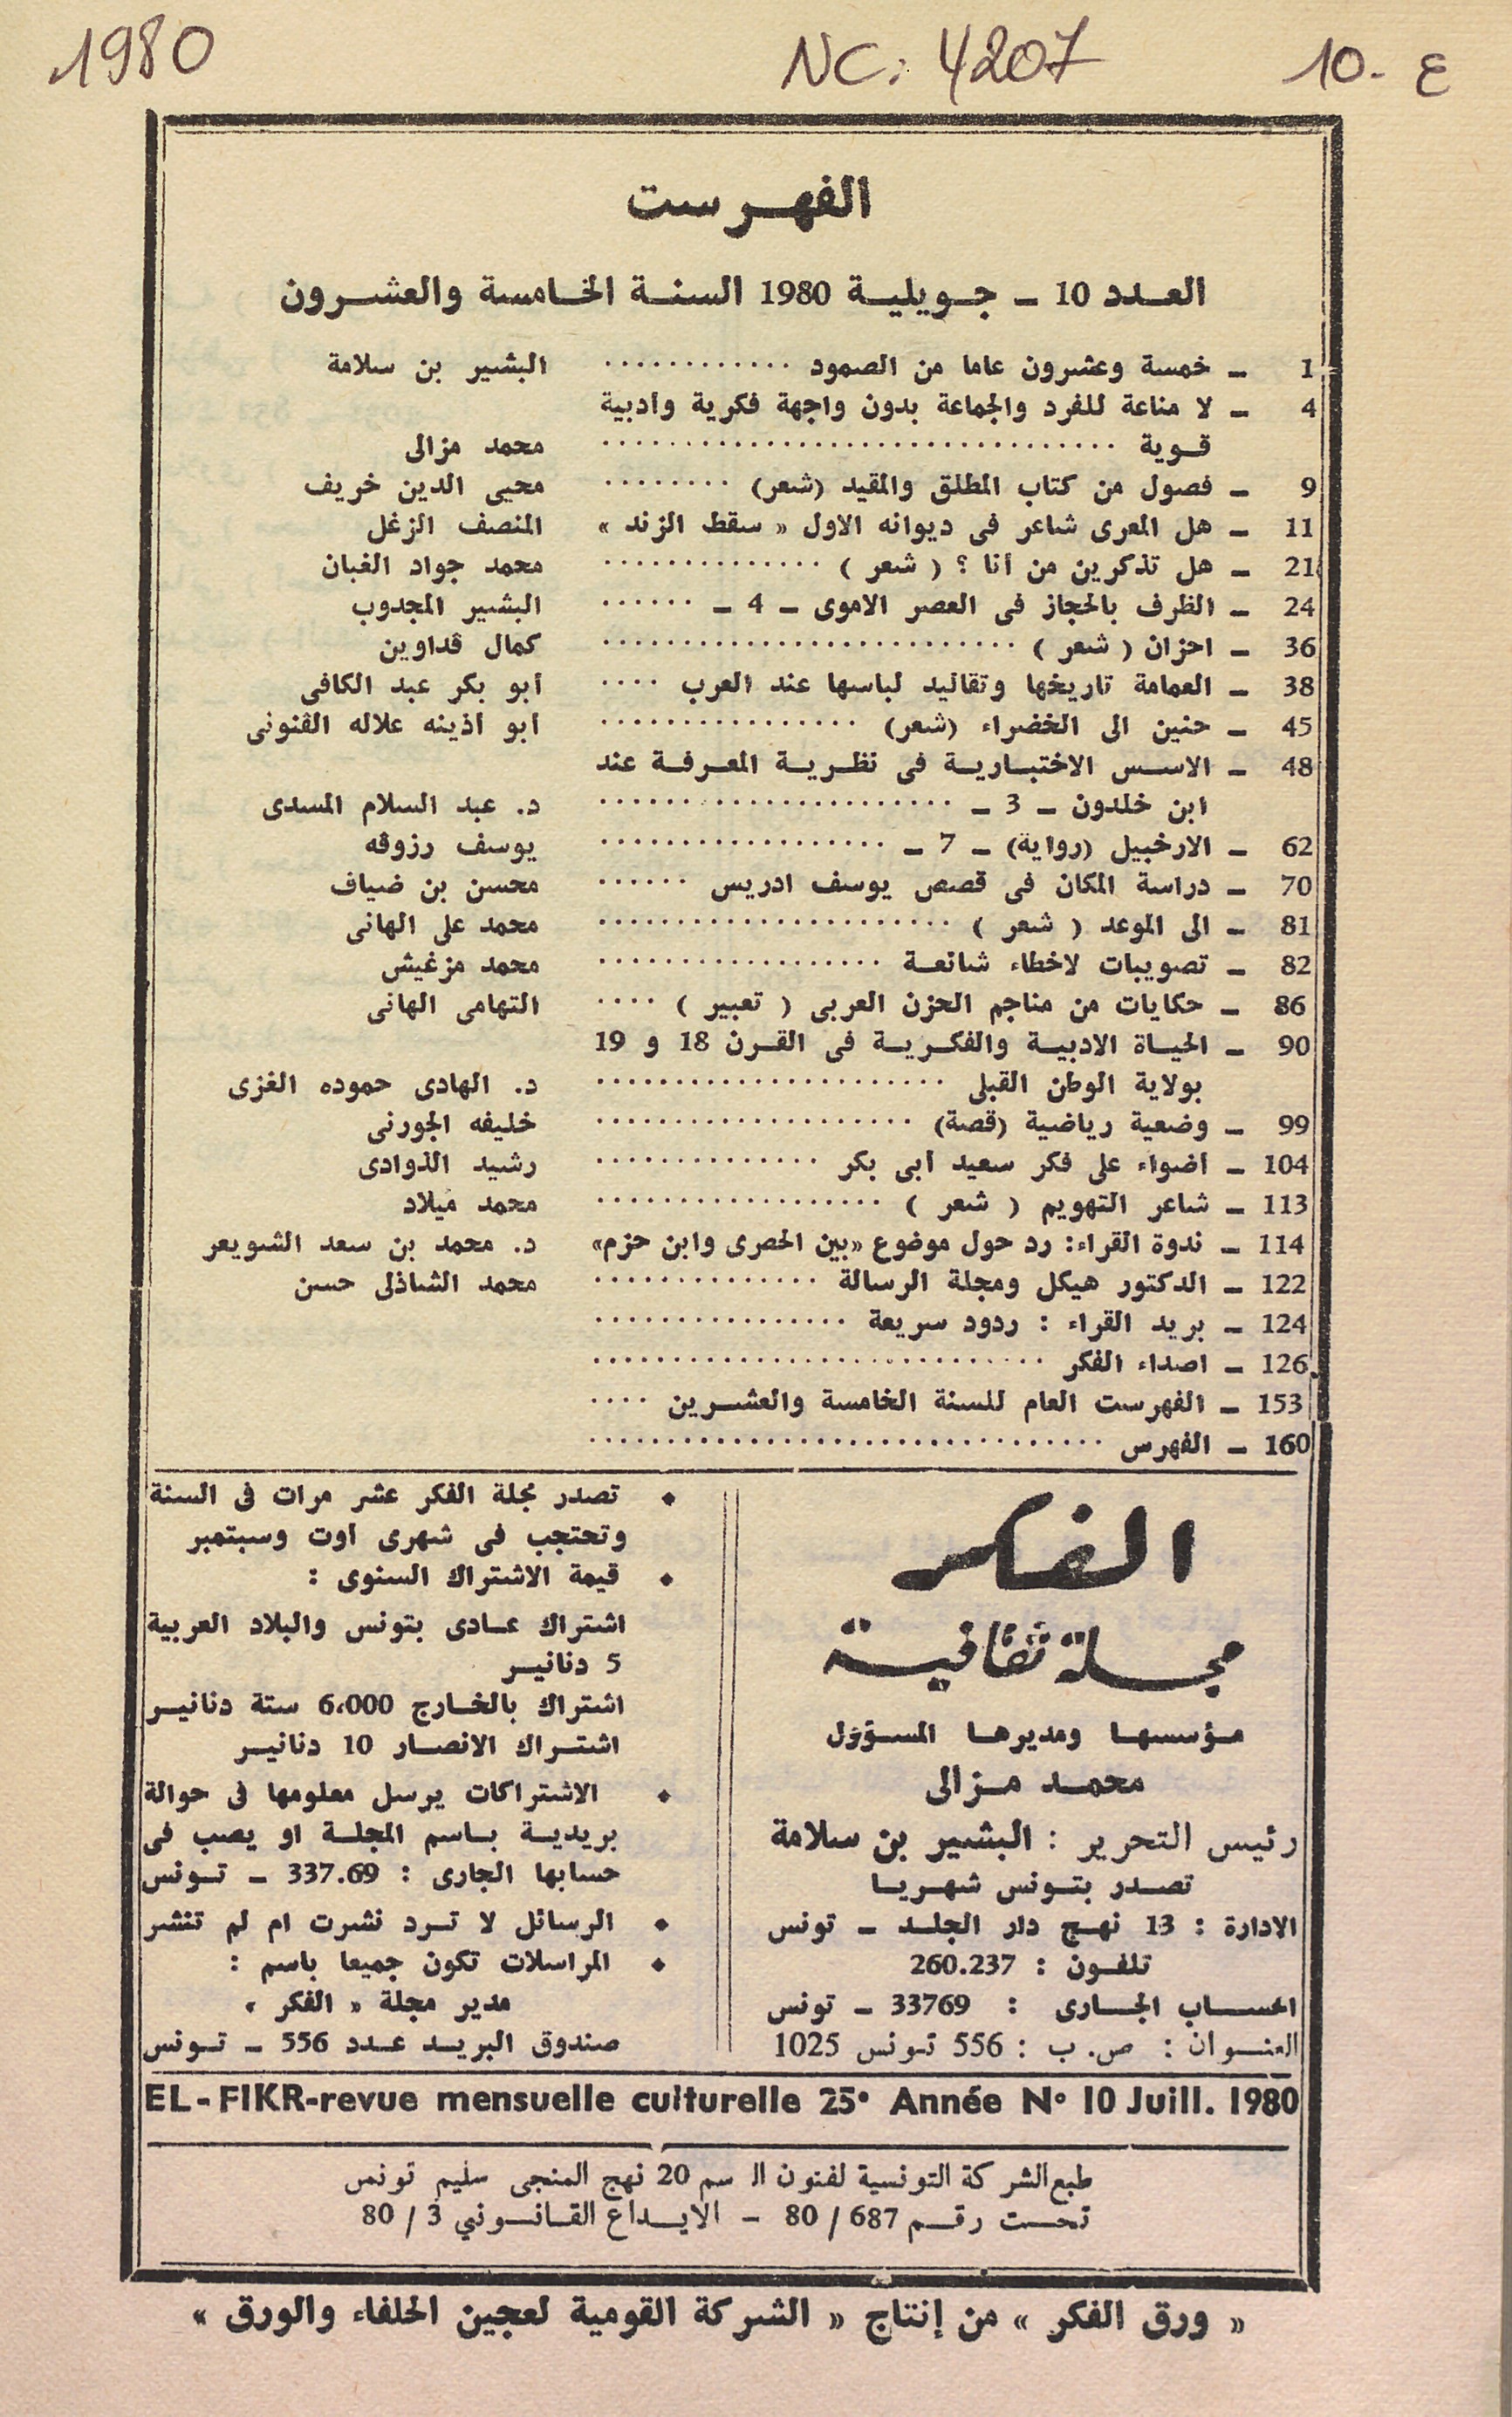 1980
NC: 4207
ع -10
الفهرست
العدد 10 ـ جويلية 1980 السنة الخامسة والعشرون
1 ـ خمسة وعشرون عاما من الصمود ............ البشير بن سلامة
4 ـ لا مناعة للفرد والجماعة بدون واجهة فكرية وأدبية
قوية ................................. محمد مزالى
9 ـ فصول من كتاب المطلق والمقيد (شعر) ........ محيى الدين خريف
11 ـ هل المعرى شاعر فى ديوانه الاول « سقط الزند » المنصف الزغل
21 ـ هل تذكرين من أنا ؟ ( شعر ) .............. محمد جواد الغبان
24 ـ الظرف بالحجاز فى العصر الاموى ـ 4 ـ ...... البشير المجدوب
36 ـ احزان ( شعر ) ........................... كمال قداوين
38 ـ العمامة تاريخها وتقاليد لباسها عند العرب .... أبو بكر عبد الكافى
45 ـ حنين الى الخضراء (شعر) ................. أبو أذينه علاله القنونى
48 ـ الاسس الاختبارية فى نظرية المعرفة عند
ابن خلدون ـ 3 ـ ....................... د. عبد السلام المسدى
62 ـ الارخبيل (رواية) ـ 7 ـ ................... يوسف رزوقه
70 ـ دراسة المكان فى قصص يوسف ادريس ...... محسن بن ضياف
81 ـ الى الموعد ( شعر ) ....................... محمد على الهانى
82 ـ تصويبات لاخطاء شائعة ................... محمد مزغيش
86 ـ حكايات من مناجم الحزن العربى ( تعبير ) .... التهامى الهانى
90 ـ الحياة الادبية والفكرية فى القرن 18 و 19
بولاية الوطن القبلى ....................... د. الهادى حموده الغزى
99 ـ وضعية رياضية (قصة) ..................... خليفه الجورنى
104 ـ أضواء على فكر سعيد أبى بكر ............... رشيد الذوادى
113 ـ شاعر التهويم ( شعر ) ................... محمد ميلاد
114 ـ ندوة القراء: رد حول موضوع «بين الحصرى وابن حزم» د. محمد بن سعد الشويعر
122 ـ الدكتور هيكل ومجلة الرسالة ............... محمد الشاذلى حسن
124 ـ بريد القراء : ردود سريعة .................
126 ـ اصداء الفكر .............................
153 ـ الفهرست العام للسنة الخامسة والعشرين ....
160 ـ الفهرس .................................
الفكر
مجلة ثقافية
مؤسسها ومديرها المسؤول
محمد مزالى
رئيس التحرير : البشير بن سلامة
تصدر بتونس شهريا
الادارة : 13 نهج دار الجلد ـ تونس
تلفون : 260.237
الحساب الجارى : 33769 ـ تونس
العنوان : ص. ب : 556 تونس 1025
♦ تصدر مجلة الفكر عشر مرات فى السنة
وتحتجب فى شهرى أوت وسبتمبر
♦ قيمة الاشتراك السنوى :
اشتراك عادى بتونس والبلاد العربية
5 دنانير
اشتراك بالخارج 6،000 ستة دنانير
اشتراك الانصار 10 دنانير
♦ الاشتراكات يرسل معلومها فى حوالة
بريدية باسم المجلة او يصب فى
حسابها الجارى : 337.69 ـ تونس
♦ الرسائل لا ترد نشرت ام لم تنشر
♦ المراسلات تكون جميعا باسم :
مدير مجلة « الفكر »
صندوق البريد عدد 556 ـ تونس
EL-FIKR-revue mensuelle culturelle 25• Année N° 10 Juill. 1980
طبع الشركة التونسية لفنون ال سم 20 نهج المنجى سليم تونس
تحت رقم 687 / 80 - الايداع القانوني 3 / 80
« ورق الفكر » من إنتاج « الشركة القومية لعجين الحلفاء والورق »